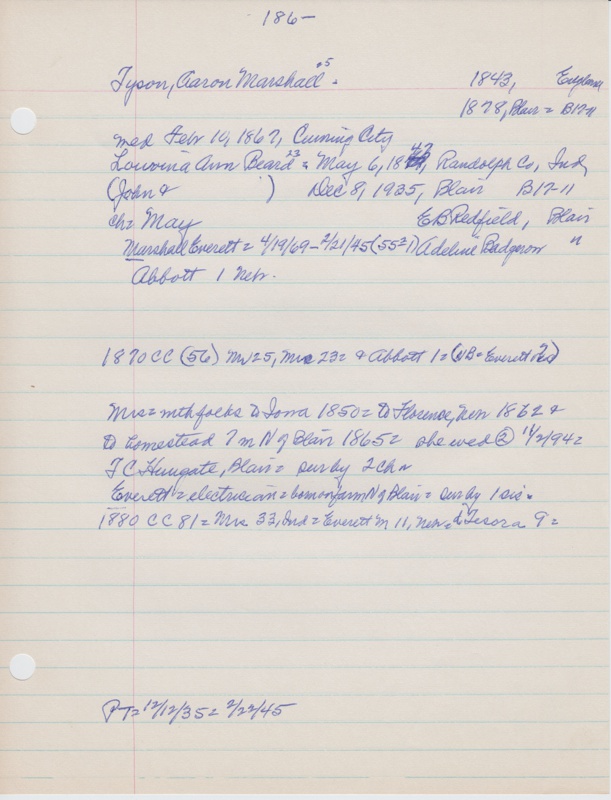 186-
Tyson, Aaron "Marshall" 25 = 1843, England
1878, Blair = B17-11
med Feb 10, 1867, Cuming City
Louvina Ann Beard 23 = May 6, 1847, Randolph Co, Ind
(John & ) Dec 8, 1935, Blair B17-11
ch = May E B Redfield, Blair
Marshall Everett = 4/19/69 - 2/21/45 (5521) Adeline Badgerow "
Abbott 1 Neb.
1870 CC (56) Mr 25, Mrs 23 = & Abbott 1 = (NB = Everett
Mrs = mth folks to Iowa 1850 = to Florence, Neb 1862 &
to homestead 7 m N of Blair 1865 = she wed ② 11/2/94 =
T C Hungate, Blair = sur by 2 ch =
Everett = electrician = born on farm N of Blair = sur by 1 sis.
1880 CC 81 = Mrs 33, Ind = Everett m 11, Neb = d Tesora 9 =
PT = 12/12/35 = 2/22/45